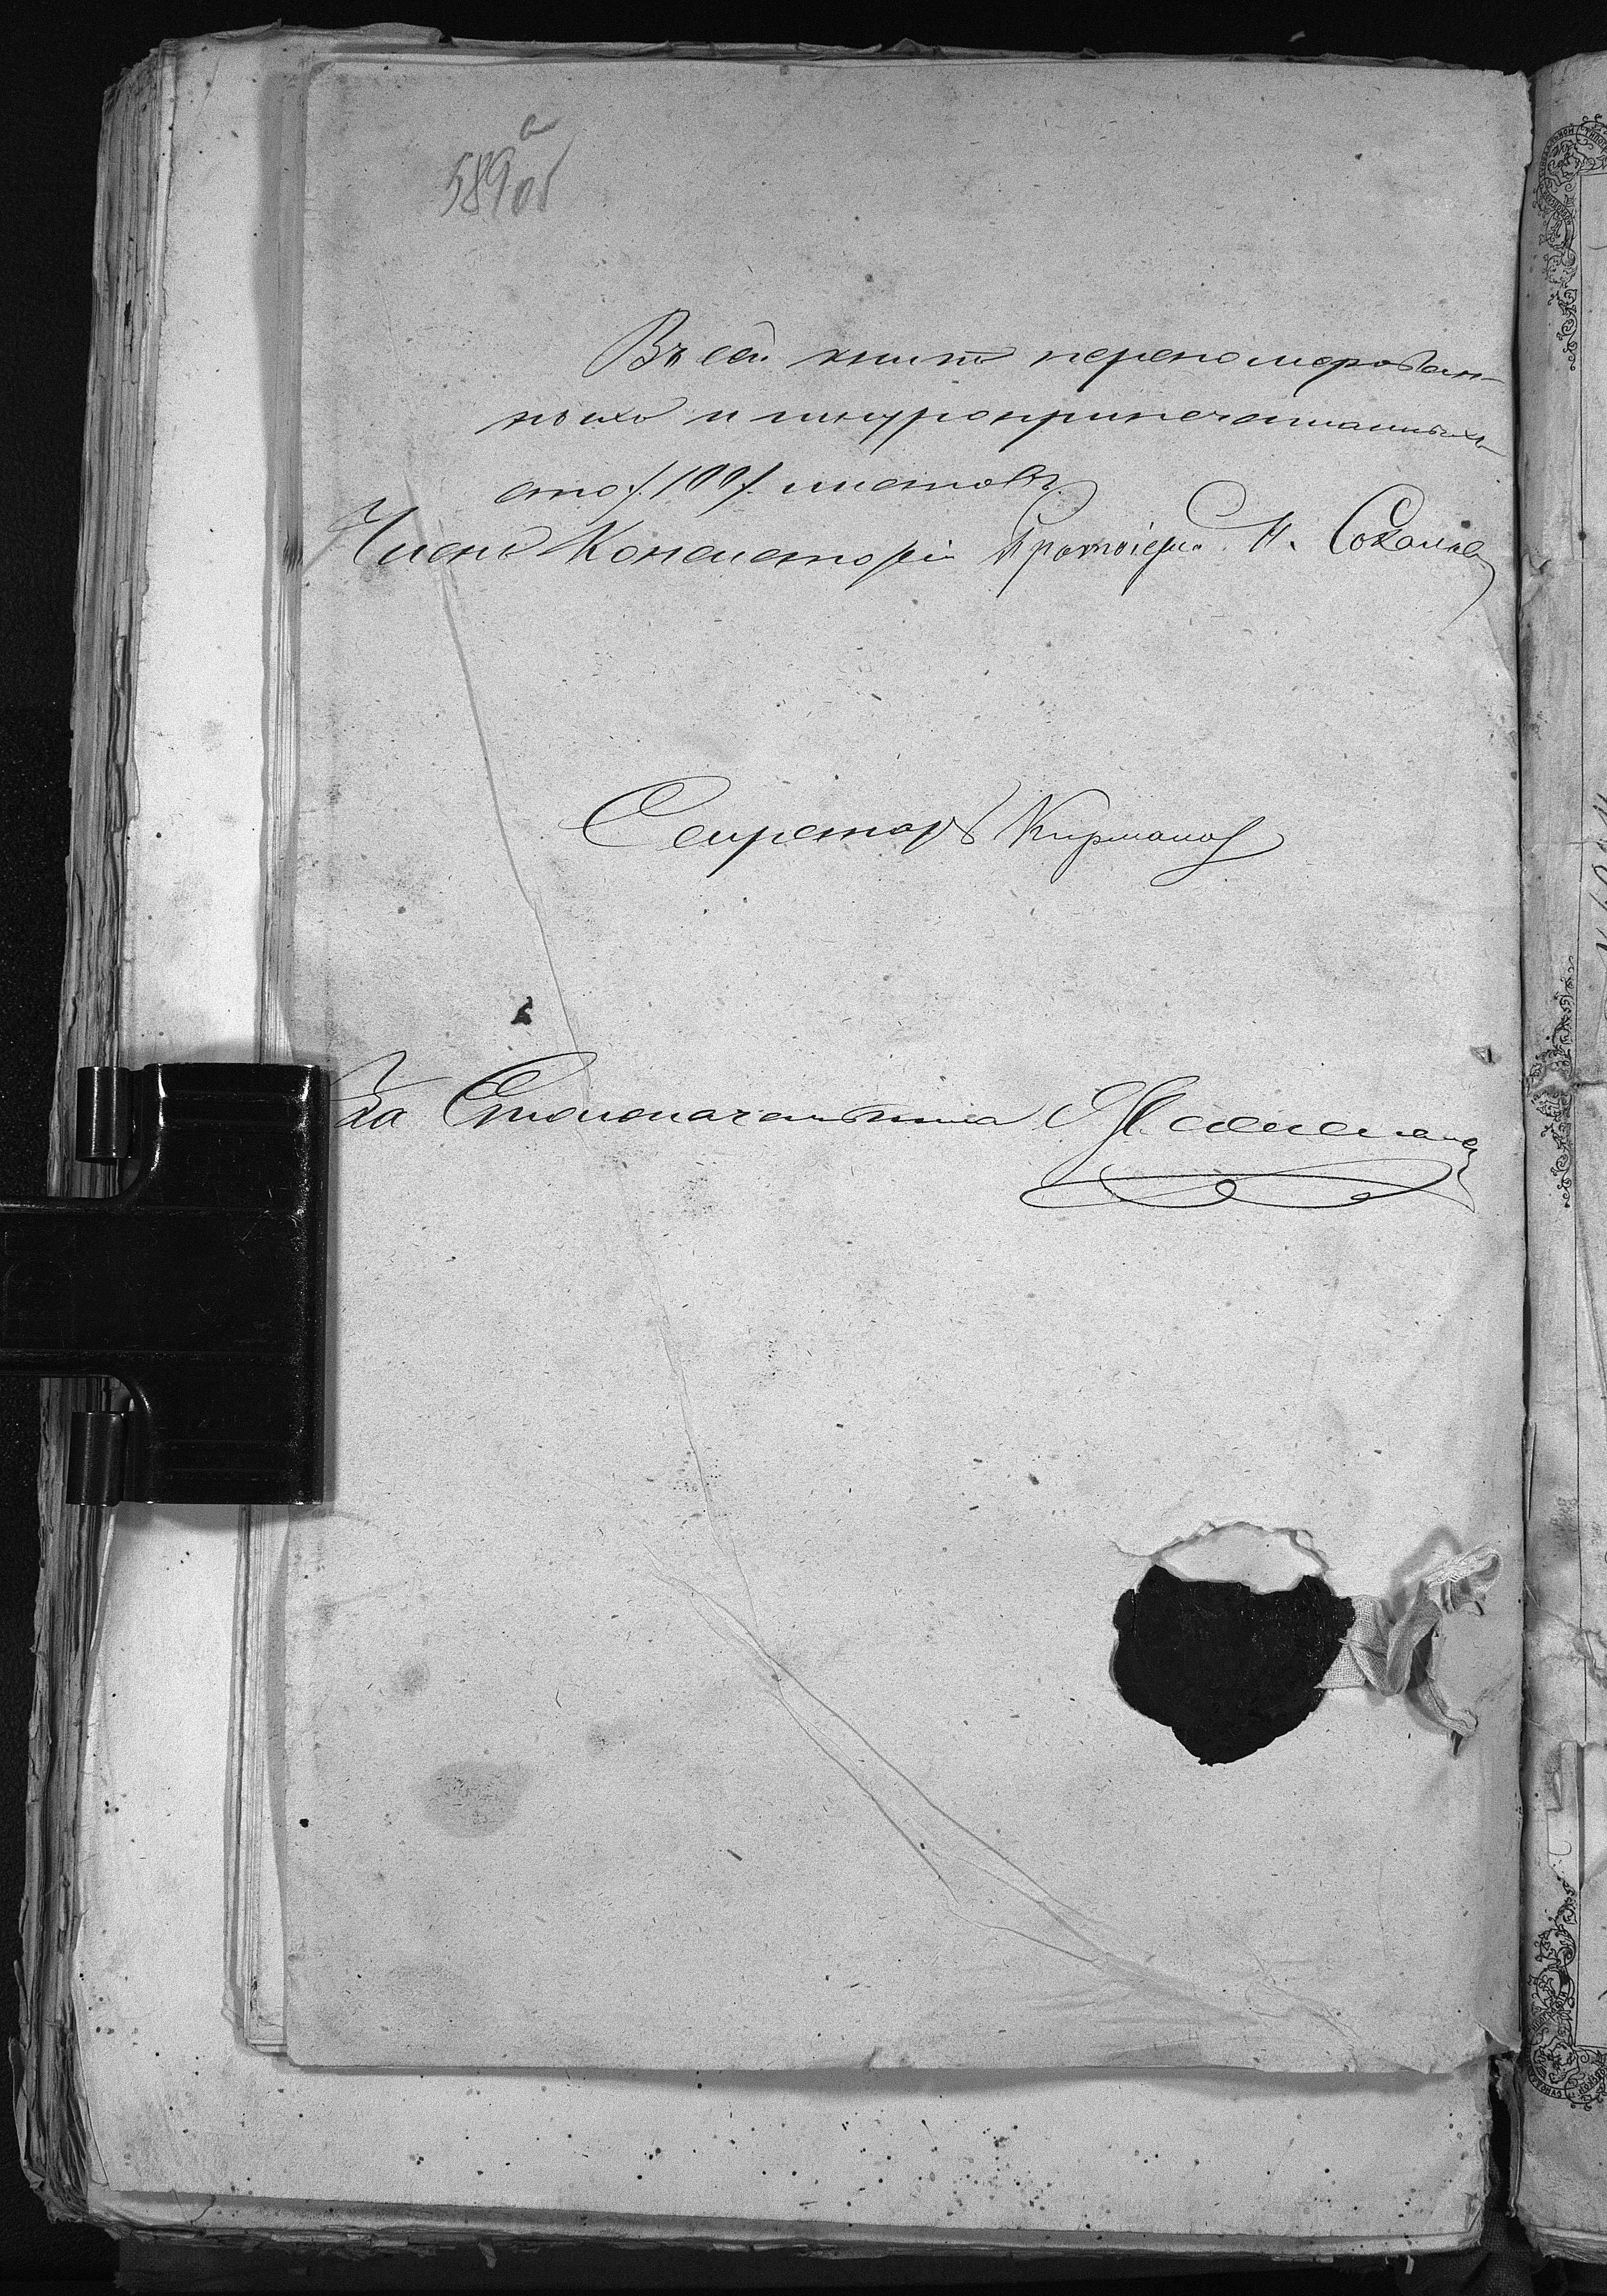 а
589об
Въ сей книгѣ перенумерован-
ныхъ и шнуроприпечатанныхъ
сто /100/. листовъ.
Членъ Консисторіи Протоіерей Н. Соколов
Секретарь
За Столоначальника